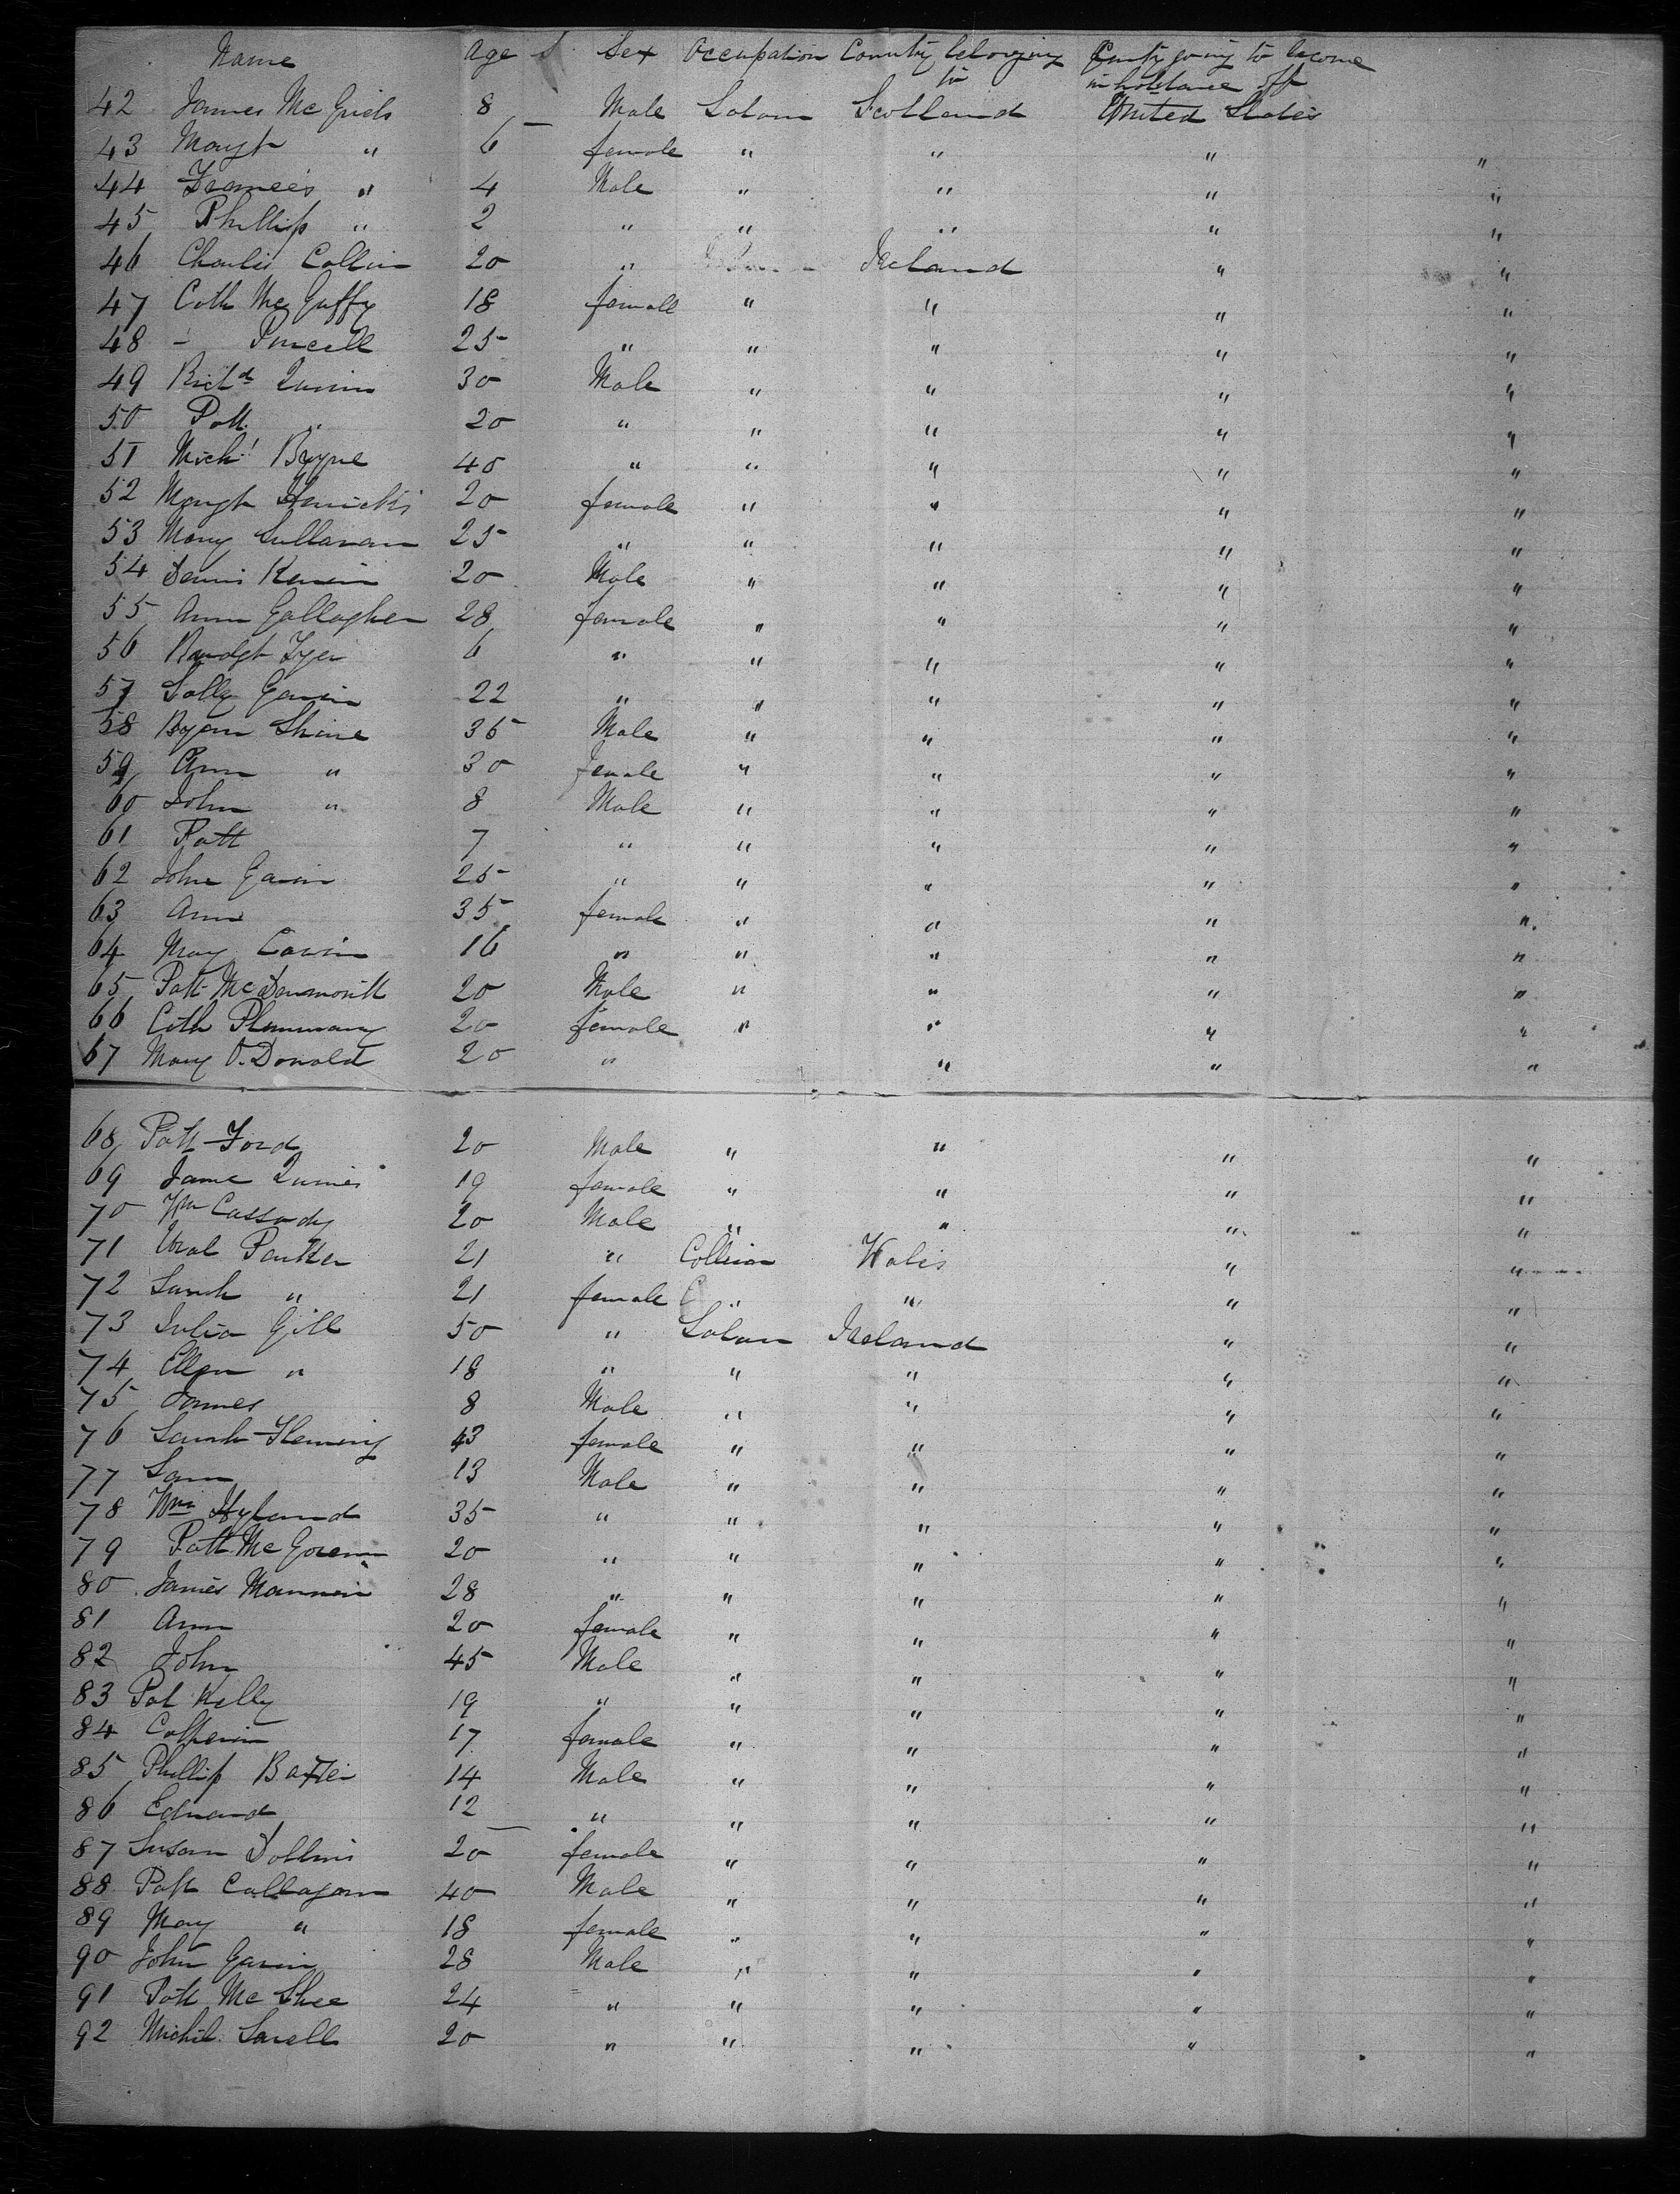 Name Age Sex Occupation Country belonging to Country going to become inhabitance off
42 James Mc 8 Male Labour Scotland United States
43 Margt " 6 female " " " "
44 Francis " 4 Male " " " "
45 Phillip " 2 " " " " "
46 Charles Collin 20 " Ireland " "
47 Cath Mc Guffy 18 female " " " "
48 - Purcell 25 " " " " "
49 Richd Quinn 30 Male " " " "
50 Patt " 20 " " " " "
51 Michl Bryne 40 " " " " "
52 Margt 20 female " " " "
53 Mary Sullavan 25 " " " " "
54 Dennis 20 Male " " " "
55 Ann Gallagher 28 female " " " "
56 6 " " " " "
57 Sally Gavin 22 " " " " "
58 Bryan Shine 35 Male " " " "
59 Ann " 30 female " " " "
60 John " 8 Male " " " "
61 Patt 7 " " " " "
62 John Gavin 25 " " " " "
63 Ann 35 female " " " "
64 Mary 16 " " " " "
65 Patt Mc Dermontt 20 Male " " " "
66 Cath 20 female " " " "
67 Mary O.Donald 20 " " " "
68 Patt Ford 20 Male " " " "
69 Jane 19 female " " " "
70 Wm Cassady 20 Male " " " "
71 21 " Collier Wales " "
72 Sarah " 21 female " " " "
73 Julia Gill 50 " Labour Ireland " "
74 Ellen " 18 " " " " "
75 James 8 Male " " " "
76 Sarah Fleming 43 female " " " "
77 Sam 13 Male " " " "
78 Wm Hyland 35 " " " " "
79 Patt Mc 20 " " " " "
80 James Mannin 28 " " " " "
81 Ann 20 female " " " "
82 John 45 Male " " " "
83 Pat Kelly 19 " " " " "
84 17 female " " " "
85 Phillip 14 Male " " " "
86 Edward 12 " " " " "
87 Susan 20 female " " " "
88 Patt Callagan 40 Male " " " "
89 Mary " 18 female " " " "
90 John Gavin 28 Male " " " "
91 Patt Mc Shee 24 " " " " "
92 20 " " " " "